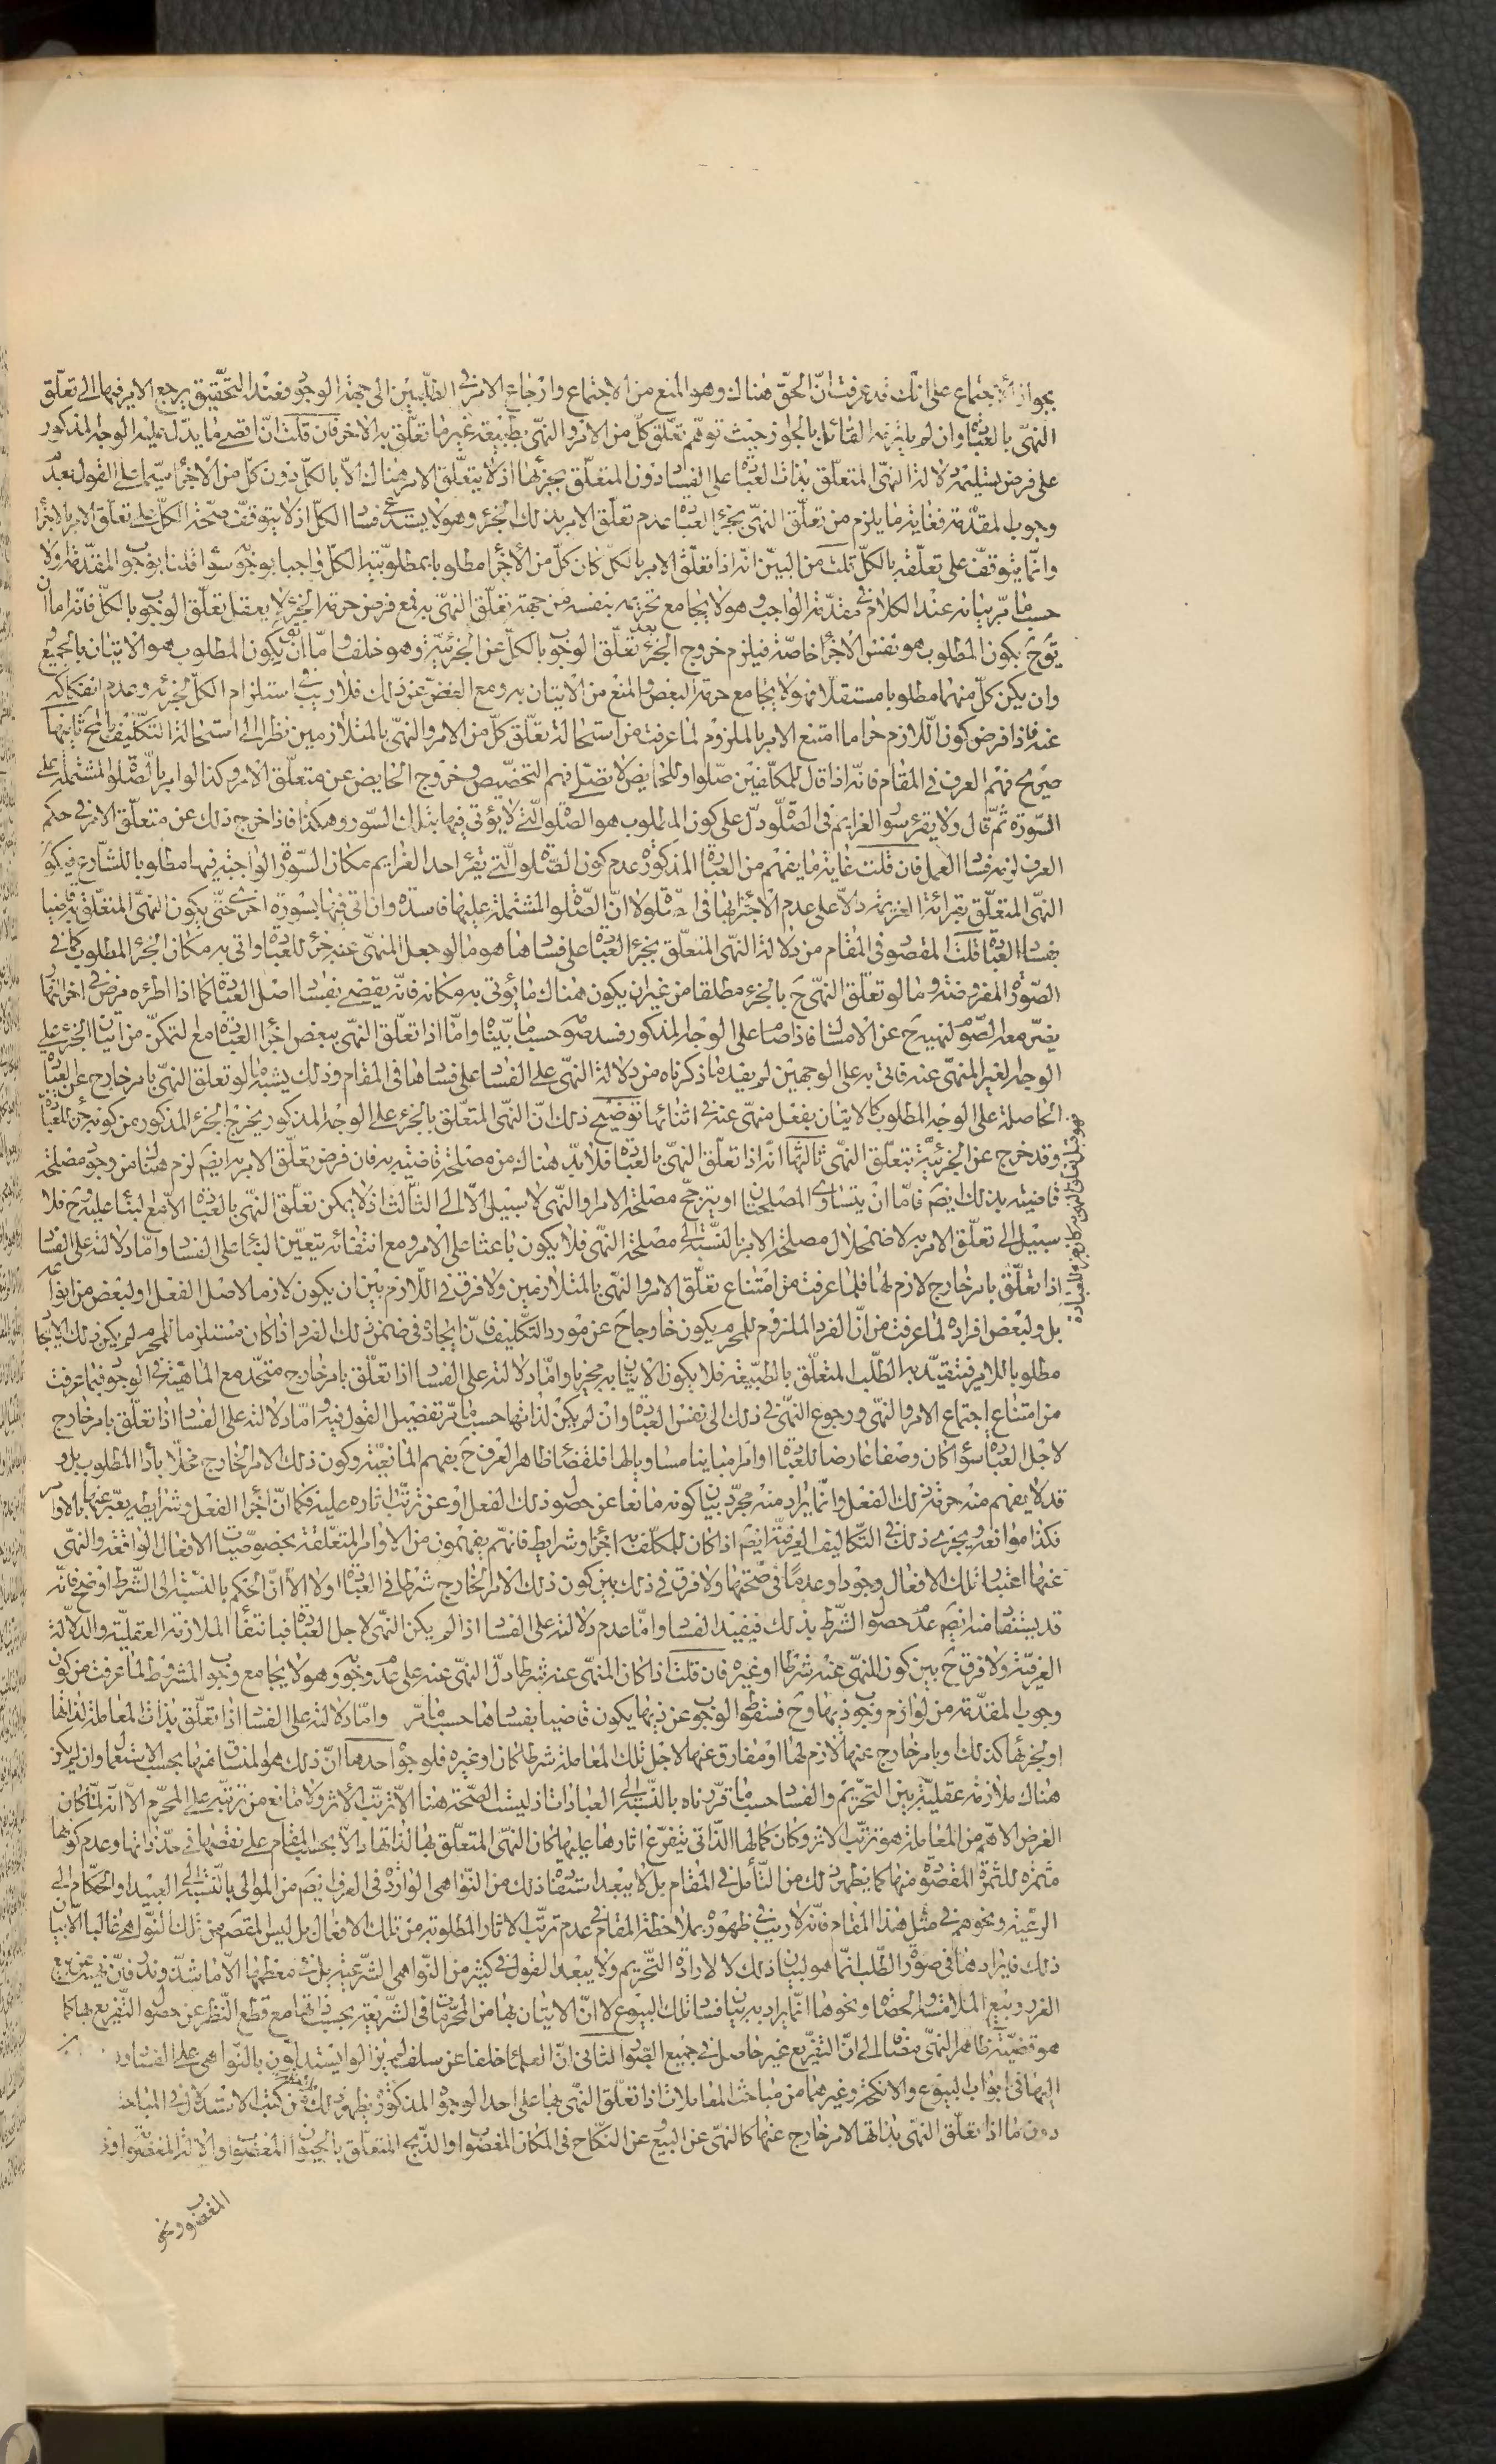 بجواز الاجتماع على انك قد عرفت انّ الحقّ هناك هو المنع من الاجتماع وارجاع الامر فى الطلبين الى جهة الوجوب فعند التحقيق يرجع الامر فيها الى تعلّق
النهى بالعبادة وان لم يلتزمه القائل بالجواز حيث توهّم تعلّق كلّ من الامر والنهى بطبيعة غير ما تعلّق به الاخر فان قلت انّ اقصى ما يدلّ عليه الوجه المذكور
على فرض تسليمه دلالة النهى المتعلّق بذات العبادة على الفساد دون المتعلّق بجزئها اذ لا يتعلّق الامر هناك الّا بالكلّ دون كلّ من الاجزاء سيّما على القول بعدم
وجوب المقدّمة فغاية ما يلزم من تعلّق النهى بجزء العبادة عدم تعلّق الامر بذلك الجزء وهو لا يستدعى فساد الكلّ اذ لا يتوقّف صحّة الكلّ على تعلّق الامر بالاجزاء
وانّما يتوقّف على تعلّقه بالكلّ قلت من البيّن انّه اذا تعلّق الامر بالكلّ كان كلّ من الاجزاء مطلوبا بمطلوبيّة الكلّ واجبا بوجوبه سواء قلنا بوجوب المقدّمة او لا
حسب ما مرّ بيانه عند الكلام فى مقدّمة الواجب وهو لا يجامع تحريمه بنفسه من جهة تعلّق النهى به فمع فرض حرمة الجزء لا يعقل تعلّق الوجوب بالكلّ فانّه اما ان
يكون المطلوب هو نفس الاجزاء خاصّة فيلزم خروج الجزء بعد تعلّق الوجوب بالكلّ عن الجزئيّة وهو خلف وامّا ان يكون المطلوب هو الاتيان بالجميع
وان يكن كلّ منهما مطلوبا مستقلا فهو لا يجامع حرمة البعض والمنع من الاتيان به ومع الغضّ عن ذلك فلا ريب فى استلزام الكلّ لجزئه وعدم انفكاكه
عنه فاذا فرض كون اللازم حراما امتنع الامر بالملزوم لما عرفت من استحالة تعلّق كلّ من الامر والنهى بالمتلازمين نظرا الى استحالة التكليف بالمحال ثانيها
صريح فهم العرف فى المقام فانّه اذا قال للمكلّفين صلّوا وللحايض لا تصلّى فهم التخصيص وخروج الحايض عن متعلّق الامر وكذا لو امر بالصّلوة المشتملة على
السّورة ثمّ قال ولا يقرء سور العزايم فى الصّلوة دلّ على كون المطلوب هو الصّلوة الّتى لا يؤتى فيها بتلك السّور وهكذا فاذا خرج ذلك عن متعلّق الامر فى حكم
العرف لزمه فساد العمل فان قلت غاية ما يفهم من العبارة المذكورة عدم كون الصّلوة الّتى يقرء احد العزايم مكان السّورة الواجبة فيها مطلوبا للشّارع فيكون
النهى المتعلّق بقرائة العزيمة دالّا على عدم الاجتزاء بها فى الصّلوة لا انّ الصّلوة المشتملة عليها فاسدة وان اتى فيها بسورة اخرى حتّى يكون النهى المتعلّق به قاضيا
بفساد العبادة قلت المقصود فى المقام من دلالة النهى المتعلّق بجزء العبادة على فسادها هو ما لو جعل المنهىّ عنه جزء للعبادة واتى به مكان الجزء المطلوب كما فى
الصّورة المفروضة وما لو تعلّق النهى ح بالجزء مطلقا من غير ان يكون هناك ما يؤتى به مكانه فانّه يقضى بفساد اصل العبادة كما اذا
يضرّ معه الصّوم لنهيه ح عن الامساك فاذا صام على الوجه المذكور فسد صومه حسب ما بيّناه وامّا اذا تعلّق النهى ببعض اجزاء العبادة مع التمكّن من اتيان الجزء على
الوجه الغير المنهىّ عنه فاتى به على الوجهين لم يفد ما ذكرناه من دلالة النهى على الفساد على فسادها فى المقام وذلك يشبه ما لو تعلّق النهى بامر خارج عن العبادة
الحاصلة على الوجه المطلوب كالاتيان بفعل منهىّ عنه فى اثنائها توضيح ذلك انّ النهى المتعلّق بالجزء على الوجه المذكور يخرج الجزء المذكور عن كونه جزء للعبادة
وقد خرج عن الجزئيّة بتعلّق النهى ثالثها انّه اذا تعلّق النهى بالعبادة فلا بدّ هناك من مصلحة قاضية به فان فرض تعلّق الامر به ايضم لزم هناك من وجود مصلحة
قاضية بذلك ايضم فامّا ان يتساوى المصلحتان او يترجّح مصلحة الامر او النّهى لا سبيل الّا الى الثالث اذ لا يمكن تعلّق النهى بالعبادة الّا مع البناء عليه وح فلا
سبيل الى تعلّق الامر به لاضمحلال مصلحة الامر بالنّسبة الى مصلحة النهى فلا يكون باعثا على الامر ومع انتفائه يتعيّن البناء على الفساد وامّا دلالته على الفساد
اذا تعلّق بامر خارج لازم لها فلما عرفت من امتناع تعلّق الامر والنهى بالمتلازمين ولا فرق فى اللّازم بين ان يكون لازما لاصل الفعل او لبعض من انواعه
بل ولبعض افراده لما عرفت من انّ الفرد الملزوم للمحرم يكون خارجا ح عن مورد التكليف فانّ ايجاده فى ضمن ذلك الفرد اذا كان مستلزما للمحرم لم يكن ذلك الايجاد
مطلوبا للامر فيتقيّد به الطّلب المتعلّق بالطّبيعة فلا يكون الاتيان به مجزيا وامّا دلالته على الفساد اذا تعلّق بامر خارج متّحد مع الماهيّة فى الوجود فلما عرفت
من امتناع اجتماع الامر والنهى ورجوع النهى فى ذلك الى نفس العبادة وان لم يكن لذاتها حسب ما مرّ تفصيل القول فيه وامّا دلالته على الفساد اذا تعلّق بامر خارج
لاجل العبادة سواء كان وصفا عارضا للعبادة او امرا مباينا مساويا لها فلقضاء ظاهر العرف ح بفهم المانعيّة وكون ذلك الامر الخارج مخلّا باداء المطلوب بل و
قد لا يفهم منه حرمة ذلك الفعل وانّما يراد منه مجرّد بيان كونه مانعا عن حصول ذلك الفعل او عن ترتّب اثاره عليه فكما انّ اجزاء الفعل وشرايطه يعبّر عنها بالاوامر
فكذا موانعه ويجرى ذلك فى التكاليف العرفيّة ايضم اذا كان للمكلّف به اجزاء وشرايط فانّهم يفهمون من الاوامر المتعلّقة بخصوصيّات الافعال الواقعة والنهى
عنها اعتبار تلك الافعال وجودا وعدما فى صحّتها ولا فرق فى ذلك بين كون ذلك الامر الخارج شرطا فى العبادة او لا الّا انّ الحكم بالنسبة الى الشّرط اوضح فانّه
قد يستفاد منه ايضم عدم حصول الشّرط بذلك فيفيد الفساد وامّا عدم دلالته على الفساد اذا لم يكن النهى لاجل العبادة فبانتفاء الملازمة العقليّة والدّلالة
العرفيّة ولا فرق ح بين كون المنهىّ عنه شرطا او غيره فان قلت اذا كان المنهىّ عنه شرطا دلّ النهى عنه على عدم وجوبه وهو لا يجامع وجوب المشروط لما عرفت من كون
وجوب المقدّمة من لوازم وجوب ذيها وح فسقوط الوجوب عن ذيها يكون قاضيا بفسادها حسب ما مرّ وامّا دلالته على الفساد اذا تعلّق بذات المعاملة لذاتها
او لجزئها كذلك او بامر خارج عنها لازم لها او مفارق عنها لاجل تلك المعاملة شرطا كان او غيره فلوجوه احدها انّ ذلك هو المنساق منها بحسب الاستعمال وان لم يكن
هناك ملازمة عقليّة بين التحريم والفساد حسب ما قرّرناه بالنّسبة الى العبادات اذ ليست الصّحة هنا الّا ترتّب الاثر ولا مانع من ترتّبه على المحرّم الّا انّه لمّا كان
الغرض الاهمّ من المعاملة هو ترتّب الاثر وكان كمالها الذّاتى بتفرّع اثارها عليها كان النهى المتعلّق بها لذاتها دالّا بحسب المقام على نقصها فى حدّ ذاتها وعدم كونها
مثمرة للثمرة المقصودة منها كما يظهر ذلك من التأمّل فى المقام بل لا يبعد استفادة ذلك من النّواهى الواردة فى العرف ايضم من الموالى بالنّسبة الى العبيد او الحكّام الى
الرعيّة ونحوهم فى مثل هذا المقام فانّه لا ريب فى ظهوره بملاحظة المقام فى عدم ترتّب الاثار المطلوبة من تلك الافعال بل ليس المقصود من تلك النّواهى غالبا الّا بيان
ذلك فايرادها فى صورة الطّلب انّما هو لبيان ذلك لا لارادة التّحريم ولا يبعد القول فى كثير من النّواهى الشّرعيّة بل فى معظمها الّا ما شذّ وندر فانّ نهيه عن بيع
الغرر وبيع الملامسة والحصاة ونحوها انّما يراد به بيان فساد تلك البيوع لا انّ الاتيان بها من المحرّمات فى الشّريعة بحسب ذاتها مع قطع النّظر عن حصول التّشريع بها كما
هو قضيّة ظاهر النهى مضافا الى انّ التشريع غير حاصل فى جميع الصّور الثانى انّ العلماء خلفا عن سلف لم يزالوا يستدلون بالنّواهى على الفساد
اليها فى ابواب البيوع والانكحة وغيرهما من مباحث المعاملات اذا تعلّق النّهى بها على احد الوجوه المذكورة يظهر ذلك من كتب الاستدلال فى المباحث
دون ما اذا تعلّق النهى بذاتها لامر خارج عنها كالنهى عن البيع وعن النكاح فى المكان المغصوب والذّبح المتعلّق بالحيوان المغصوب والالة المغصوبة
المغصوب ونحو